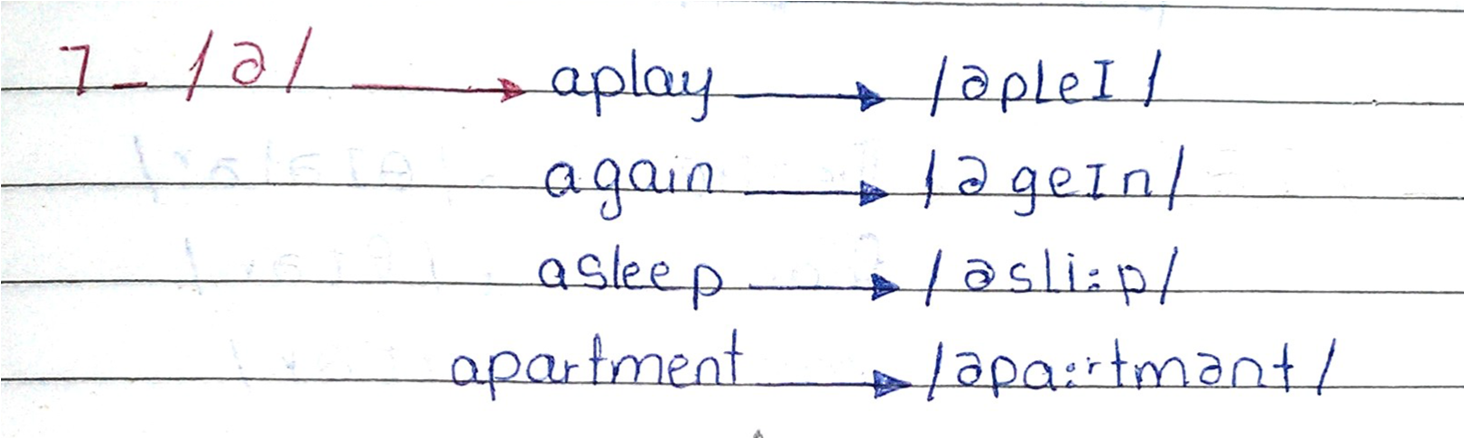 7_ /ə/ → aplay → /əpleI/
again → /əgeIn/
asleep → /əsli:p/
apartment → /əpa:rtmənt/